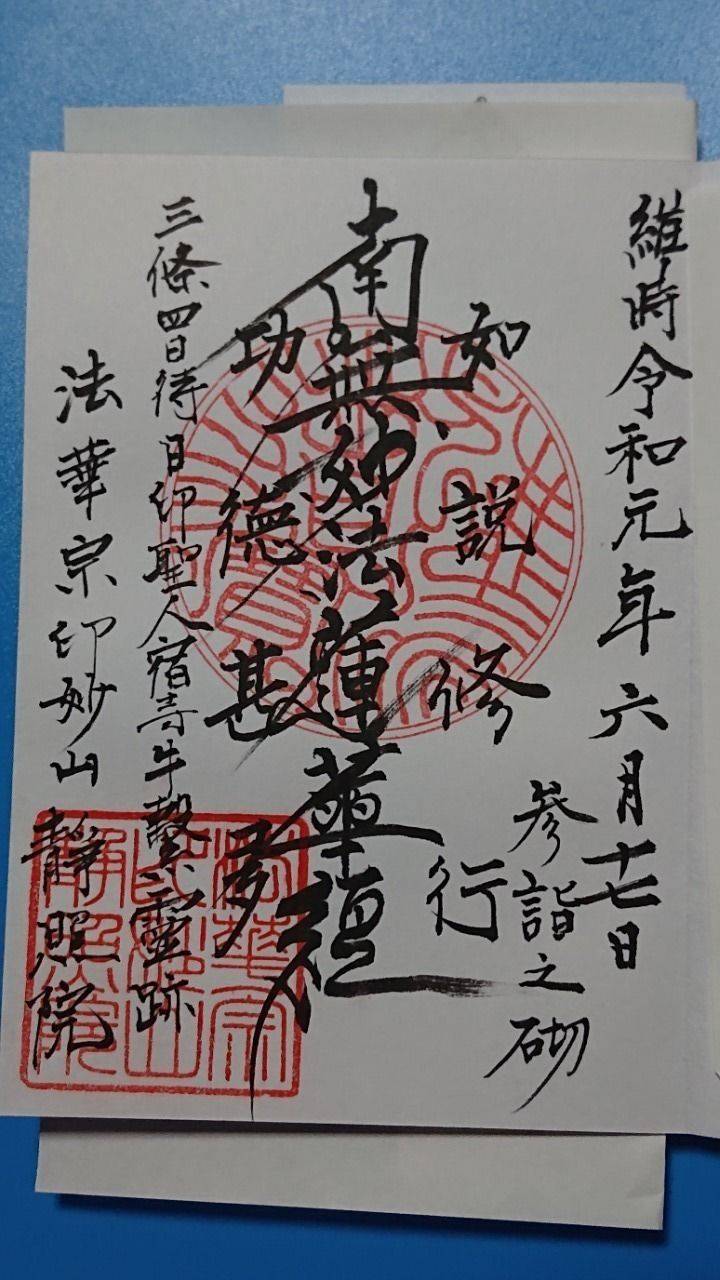 維時令和元年六月十七日
参詣之砌
如説修行
南無妙法蓮華経
功徳甚多
三條四日待日印聖人宿寺牛繋霊跡
法華宗印妙山静照院
法華宗印妙山静照院